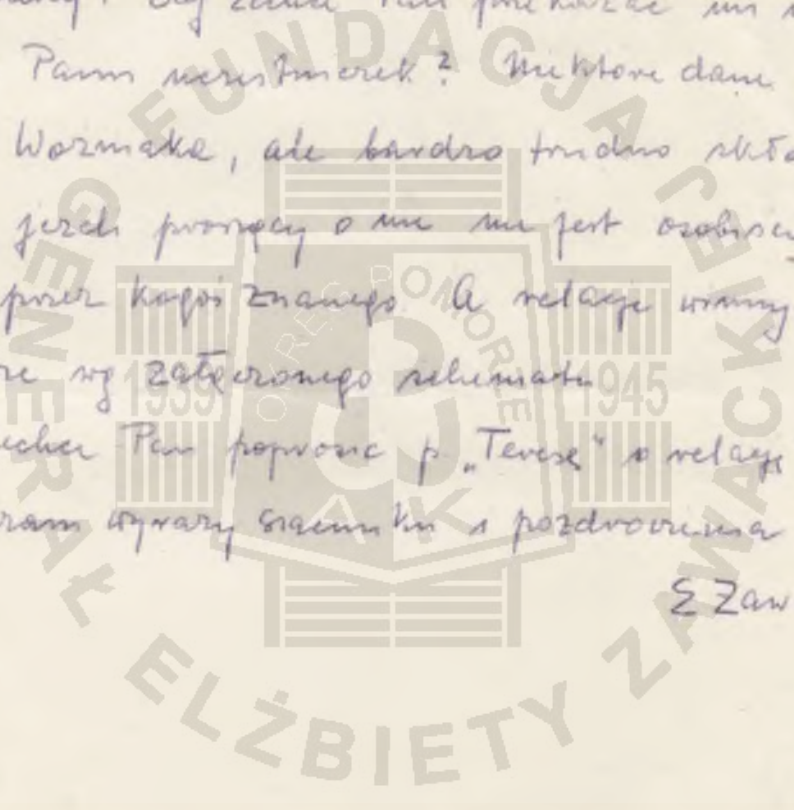 Pani uczestniczek? Niektóre dane
Woźniaka, ale bardzo trudno skła
jeżeli proszący o nie nie jest osobiści
przez kogoś znanego. A relacje winny
re wg załączonego schematu
echce Pan poprosić p. „Teresę" o relację
ram wyrazy szacunku i pozdrowienia
E Zaw
FUNDACJA
GENERAŁ ELŻBIETY ZAWACKIEJ
OKRĘG POMORZE
1939 1945
AK